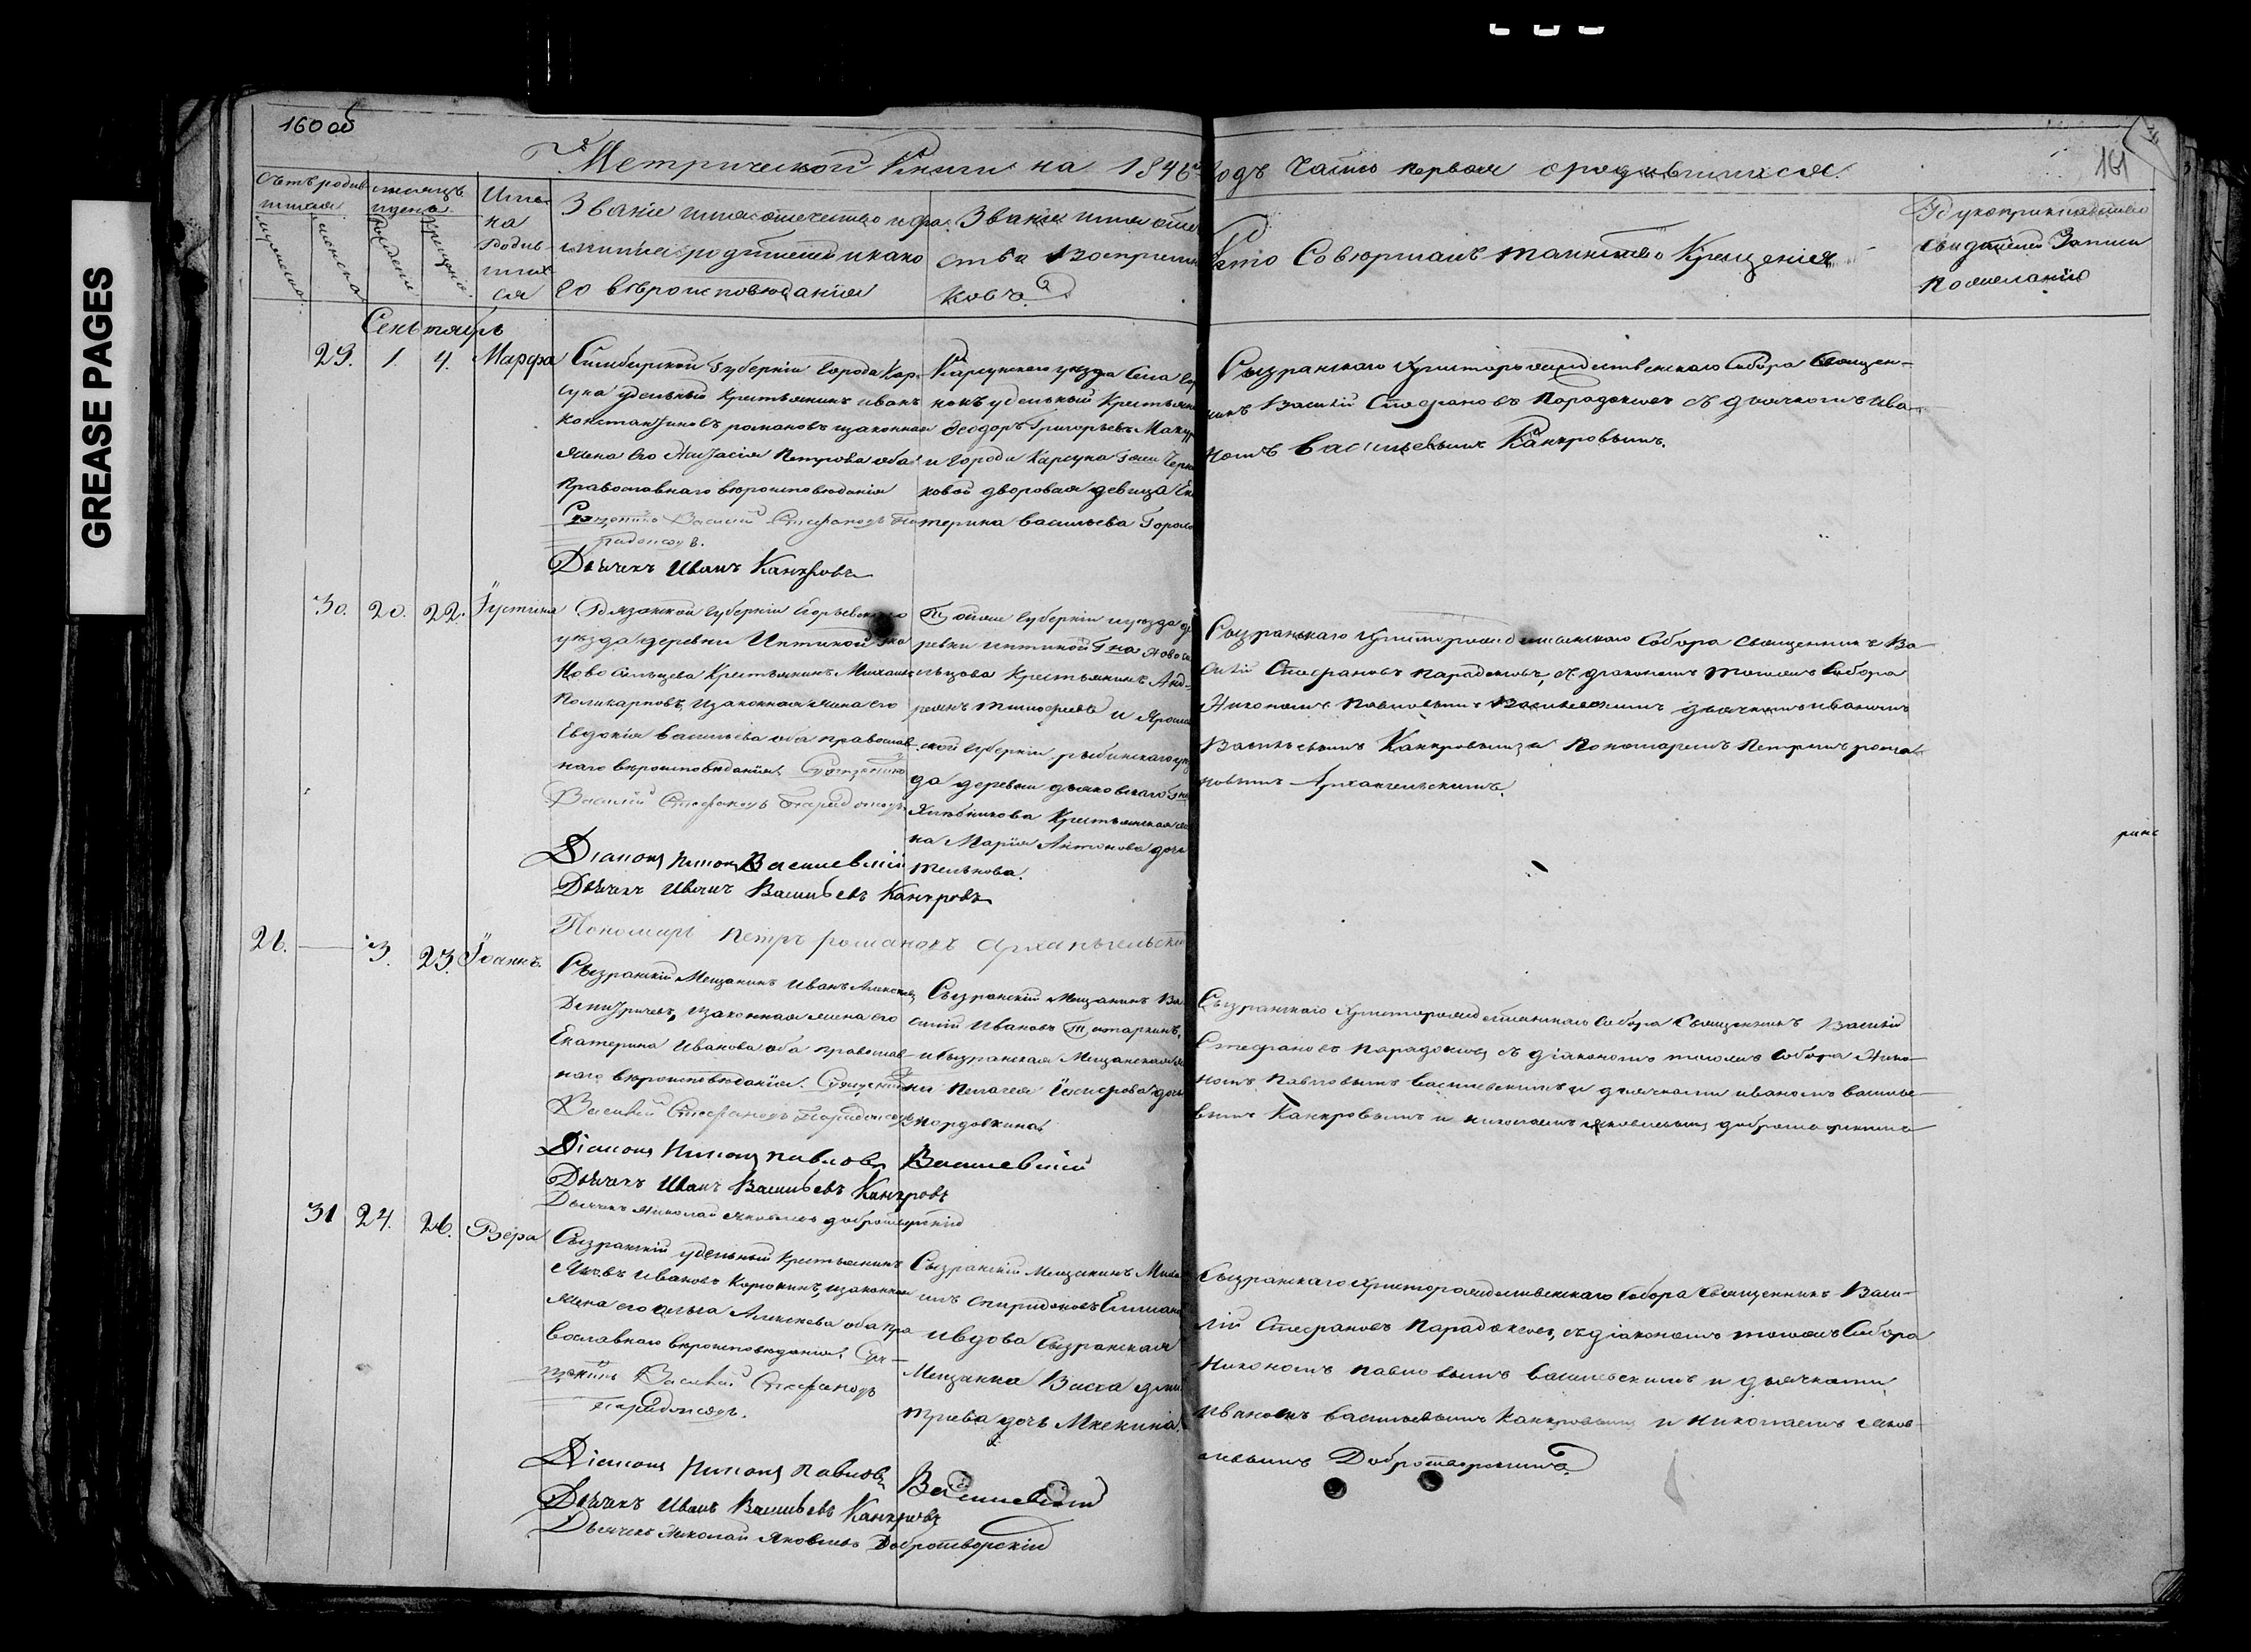 GREASE PAGES
160 об
161
Метрической Книги на 1846й Годъ Часть первая о родившихся.
Счетъ родив-
шихся.
мужеска.
женска.
месяцъ
и день.
рождения
крещения.
Име-
на
родив-
ших
ся
Званіе имя отечество и фа-
милия родителей и како
го вероисповеданія
Званіе имя оте
ства восприем
ковъ.
Кто Совершалъ таинство Крещенія
Рукоприкладство
свидетелей записи
по желанію
Сентябрь
29. 1. 4. Марфа
Симбирской Губерніи Города Кар-
суна удельный Крестьянинъ Иванъ
Константиновъ романовъ изаконная
жена его Анастасія Петрова оба
православнаго вероисповеданія
Священникъ Василій Стефановъ Па
радоксовъ.
Дьячекъ Иванъ Канкровъ
Карсунскаго уезда Села
нокъ удельный Крестьян
Феодоръ Григорьевъ
и Города Карсуна Гжи Черн
ковой дворовая девица Ека
терина Васильева
Сызранскаго Христорождественскаго Собора Священ-
никъ Василій Стефановъ Парадоксовъ съ дьячкомъ Ива-
номъ Васильевымъ Канкровымъ.
30. 20. 22. Іустина
Рязанской Губерніи Егорьевскаго
уезда деревни
Новосильцева Крестьянинъ Михаилъ
Поликарповъ, изаконная жена его
Евдокия Васильева оба православ-
наго вероисповеданія. Священникъ
Василій Стефановъ Парадоксовъ
Діаконъ Никонъ Васильевскій
Дьячекъ Иванъ Васильевъ Канкровъ
Пономарь Петръ романовъ Архангельскій
Тойже Губерніи и уезда де
ревни Гна Новоси
льцова Крестьянинъ Анд-
реянъ Тимофеевъ и Яросла
ской Губерніи рыбинскаго уез
да деревни дьяковскаго Гна
Хлебникова Крестьянская же
на Марія Антонова дочь
Сызранскаго Христорождественскаго Собора Священникъ Ва-
силій Стефановъ Парадоксовъ, съ діакономъ тогоже Собора
Никономъ Павловымъ Васильевскимъ дьячкомъ Иваномъ
Васильевымъ Канкровымъ, и Пономаремъ Петромъ рома-
новымъ Архангельскимъ.
26. 3. 23. Іоаннъ.
Сызранскій Мещанинъ Иванъ Алексеевъ
Дмитриевъ, изаконная жена его
Екатерина Иванова оба православ-
наго вероисповеданія. Священникъ
Василій Стефановъ Парадоксовъ
Діаконъ Никонъ Павловъ Васильевскій
Дьячекъ Иванъ Васильевъ Канкровъ
Дьячекъ Николай Яковлевъ добротворскій
Сызранскій Мещанинъ Ва
силій Ивановъ Татаркинъ,
и Сызранская Мещанская же
на Пелагея дочь
мордовкина
Сызранскаго Христорождественскаго Собора Священникъ Василій
Стефановъ Парадоксовъ съ діакономъ тогоже Собора Нико-
номъ Павловымъ Васильевскимъ и дьячками Иваномъ Василье-
вымъ Канкровымъ и Николаемъ Яковлевымъ добротворскимъ
31 24. 26. Вера
Сызранскій удельный Крестьянинъ
Яковъ Ивановъ Корюкинъ, изаконная
жена его Ольга Алексеева оба пра
вославнаго вероисповеданія. Свя-
щенникъ Василій Стефановъ
Парадоксовъ.
Діаконъ Никонъ Павловъ Васильевскій
Дьячекъ Иванъ Васильевъ Канкровъ
Дьячекъ Николай Яковлевъ Добротворскій
Сызранскій Мещанинъ Миха
илъ Спиридоновъ
и вдова Сызранская
Мещанка Васса дми
триева дочь Мнекина.
Сызранскаго Христорождественскаго Собора Священникъ Васи-
лій Стефановъ Парадоксовъ, съ діакономъ тогоже Собора
Никономъ Павловымъ Васильевскимъ и дьячками
Иваномъ Васильевымъ Канкровымъ и Николаемъ Яков-
левымъ Добротворскимъ